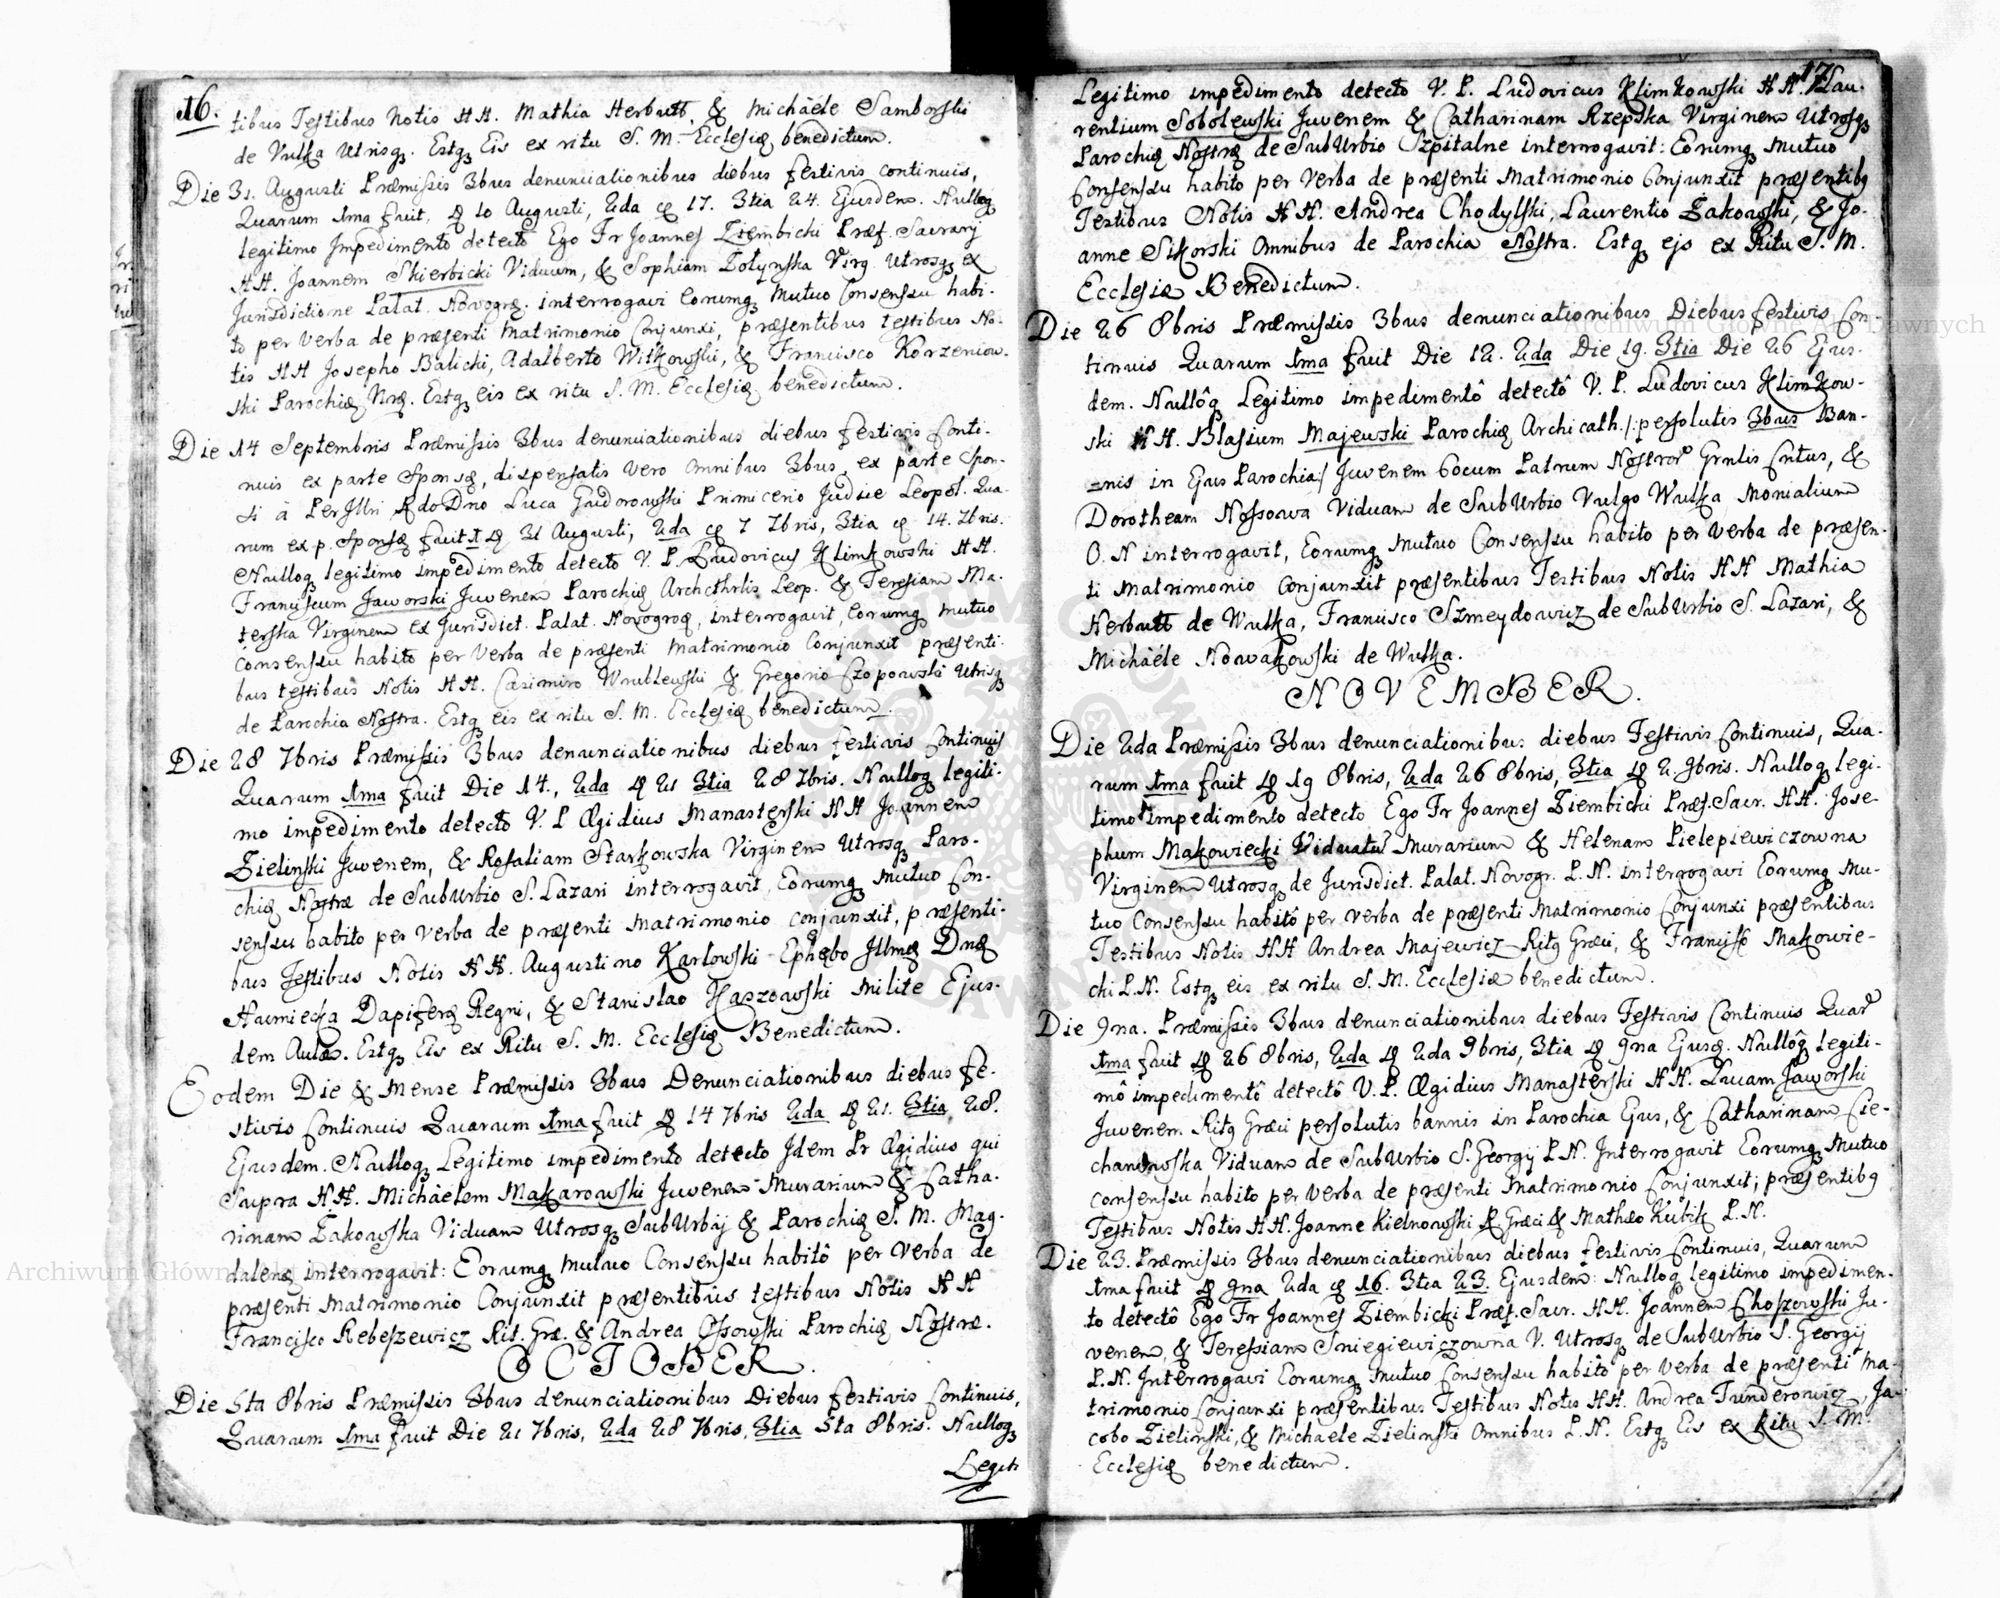 16.
tibus Testibus Notis HH. Mathia Herbutt, & Michaële Samborski
de Vulka Utrisq. Estq Eis ex ritu S. M. Ecclesiæ benedictum.
Die 31. Augusti Præmissis 3bus denunciationibus diebus festivis continuis,
Quarum 1ma fuit, 10 Augusti, 2da 17. 3tia 24. Ejusdem. Nulloq
legitimo Impedimento detecto Ego Fr Joannes Ziembicki Præf. Sacrarij
HH. Joannem Skierbicki Viduum, & Sophiam Zotynska Virg. Utrosq ex
Jurisdictione Palat. Novogræ. interrogavi Eorumq Mutuo Consensu habi-
to per verba de præsenti Matrimonio Conjunxi, præsentibus testibus No-
tis HH Josepho Balicki, Adalberto Witkowski, & Francisco Korzeniow-
ski Parochiæ Nræ. Estq eis ex ritu S. M. Ecclesiæ benedictum.
Die 14 Septembris Præmissis 3bus denunciationibus diebus festivis Conti-
nuis ex parte Sponsæ, dispensatis vero Omnibus 3bus, ex parte Spon-
si à PerIllri RdoDno Luca Gudorowski Primicerio Judice Leopol. Qua-
rum ex p. Sponsæ fuit I 31 Augusti, 2da 7 7bris, 3tia 14. 7bris.
Nulloq legitimo impedimento detecto V. P. Ludovicus Klimkowski HH.
Franciscum Jaworski Juvenem Parochiæ Archcthrlis Leop. & Teresiam Ma-
terska Virginem ex Jurisdict. Palat. Novogroæ, interrogavit, Eorumq mutuo
Consensu habito per Verba de præsenti Matrimonio Conjunxit præsenti-
bus testibus Notis HH. Casimiro Wrublewski & Gregorio Czopowski Utrisq
de Parochia Nostra. Estq eis ex ritu S. M. Ecclesiæ benedictum.
Die 28 7bris Præmissis 3bus denunciationibus diebus festivis Continuis
Quarum 1ma fuit Die 14., 2da 21 3tia 28 7bris. Nulloq legiti-
mo impedimento detecto V. P Ægidius Manasterski HH Joannem
Zielinski Juvenem, & Rosaliam Starkowska Virginem Utrosq Paro-
chiæ Nostræ de SubUrbio S. Lazari interrogavit, Eorumq mutuo Con-
sensu habito per verba de præsenti Matrimonio conjunxit, præsenti-
bus Testibus Notis HH. Augustino Karlowski Ephebo Illmæ Dnæ
Humiecka Dapiferæ Regni, & Stanislao Haszowski Milite Ejus-
dem Aulæ. Estq Eis ex Ritu S. M. Ecclesiæ Benedictum.
Eodem Die & Mense Præmissis 3bus Denunciationibus diebus fe-
stivis Continuis Quarum 1ma fuit 14 7bris 2da 21. 3tia 28.
Ejusdem. Nulloq Legitimo impedimento detecto Idem Pr Ægidius qui
Supra HH. Michaëlem Makarowski Juvenem Murarium & Catha-
rinam Zakowska Viduam Utrosq SubUrbij & Parochiæ S. M. Mag-
dalenæ interrogavit: Eorumq mutuo Consensu habitô per Verba de
præsenti Matrimonio Conjunxit præsentibus testibus Notis HH
Francisco Rebeszewicz Rit. Græ. & Andrea Ossowski Parochiæ Nostræ.
OCTOBER.
Die 5ta 8bris Præmissis 3bus denunciationibus Diebus festivis Continuis,
Quarum 1ma fuit Die 21 7bris, 2da 28 7bris, 3tia 5ta 8bris. Nulloq
Legit
17.
Legitimo impedimento detecto V. P. Ludovicus Klimkowski HH. Lau-
rentium Sobolewski Juvenem & Catharinam Rzepska Virginem Utrosq
Parochiæ Nostræ de SubUrbio Szpitalne interrogavit: Eorumq Mutuo
Consensu habito per Verba de præsenti Matrimonio Conjunxit præsentibq
Testibus Notis HH. Andrea Chodylski, Laurentio Zakowski, & Jo-
anne Sikorski Omnibus de Parochia Nostra. Estq ejs ex Ritu S. M.
Ecclesiæ Benedictum.
Die 26 8bris Præmissis 3bus denunciationibus Diebus festivis Con-
tinuis Quarum 1ma fuit Die 12. 2da Die 19. 3tia Die 26 Ejus-
dem. Nullôq Legitimo impedimentô detectô V. P. Ludovicus Klimkow-
ski HH. Blasium Majewski Parochiæ Archicath. /:persolutis 3bus Ban-
nis in Ejus Parochia:/ Juvenem Cocum Patrum Nostror Grntis Cntus, &
Dorotheam Nossowa Viduam de SubUrbio Vulgo Wulka Monialium
O. N interrogavit, Eorumq Mutuo Consensu habito per Verba de præsen-
ti Matrimonio Conjunxit præsentibus Testibus Notis HH Mathia
Herbutt de Wulka, Francisco Szmeydowicz de SubUrbio S. Lazari, &
Michaële Nowakowski de Wulka.
NOVEMBER.
Die 2da Præmissis 3bus denunciationibus diebus Festivis Continuis, Qua-
rum 1ma fuit 19 8bris, 2da 26 8bris, 3tia 2. 9bris. Nulloq Legi-
timo impedimento detecto Ego Fr Joannes Ziembicki Præf. Sacr. HH. Jose-
phum Makowiecki Viduatu Murarium & Helenam Pielepiewiczowna
Virginem Utrosq de Jurisdict. Palat. Novogr. P. N. interrogavi Eorumq Mu-
tuo Consensu habitô per verba de præsenti Matrimonio Conjunxi præsentibus
Testibus Notis HH Andrea Majewicz Ritq Græci, & Francisco Makowie-
cki P. N. Estq eis ex ritu S. M. Ecclesiæ benedictum.
Die 9na. Præmissis 3bus denunciationibus diebus Festivis Continuis Quar
1ma fuit 26 8bris, 2da 2da 9bris, 3tia 9na Ejusd. Nullôq legiti-
mô impedimentô detectô V. P. Ægidius Manasterski HH. Lucam Jaworski
Juvenem Ritq Græci persolutis bannis in Parochia Ejus, & Catharinam Cie-
chanowska Viduam de SubUrbio S. Georgij P. N. Interrogavit Eorumq Mutuo
consensu habito per verba de præsenti Matrimonio Conjunxit; præsentibq
Testibus Notis HH. Joanne Kielnowski R Græci & Mathæo Kubik P. N.
Die 23. Præmissis 3bus denunciationibus diebus festivis Continuis, Quarum
1ma fuit 9na 2da 16. 3tia 23. Ejusdem: Nulloq legitimo impedimen-
to detectô Ego Fr Joannes Ziembicki Præf. Sacr. HH. Joannem Choszowski Ju-
venem, & Teressiam Sniegiewiczowna V. Utrosq de SubUrbio S. Georgij
P. N. Interrogavi Eorumq Mutuo Consensu habitô per Verba de præsenti Ma-
trimonio Conjunxi præsentibus Testibus Notis HH. Andrea Tunderowicz, Ja-
cobo Zielinski, & Michaele Zielinski Omnibus P. N. Estq Eis ex Ritu S. M.
Ecclesiæ benedictum.
Archiwum Główne Akt Dawnych